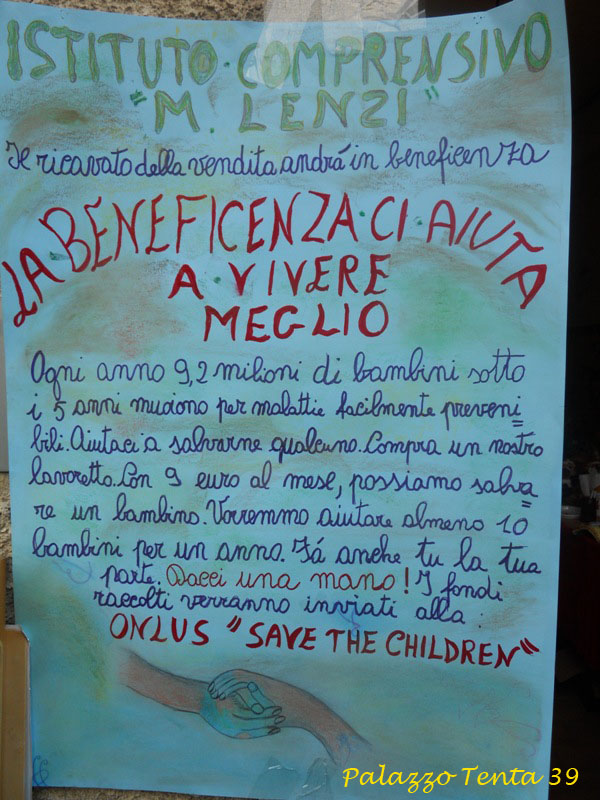 ISTITUTO COMPRENSIVO
"M. LENZI"
Il ricavato della vendita andrá in beneficenza
LA BENEFICENZA CI AIUTA
A VIVERE
MEGLIO
Ogni anno 9,2 milioni di bambini sotto
i 5 anni muoiono per malattie facilmente preveni=
bili. Aiutaci a salvarne qualcuno. Compra un nostro
lavoretto. Con 9 euro al mese, possiamo salva=
re un bambino. Vorremmo aiutare almeno 10
bambini per un anno. Fá anche tu la tua
parte. Dacci una mano! I fondi
raccolti verranno inviati alla:
ONLUS "SAVE THE CHILDREN"
Palazzo Tenta 39